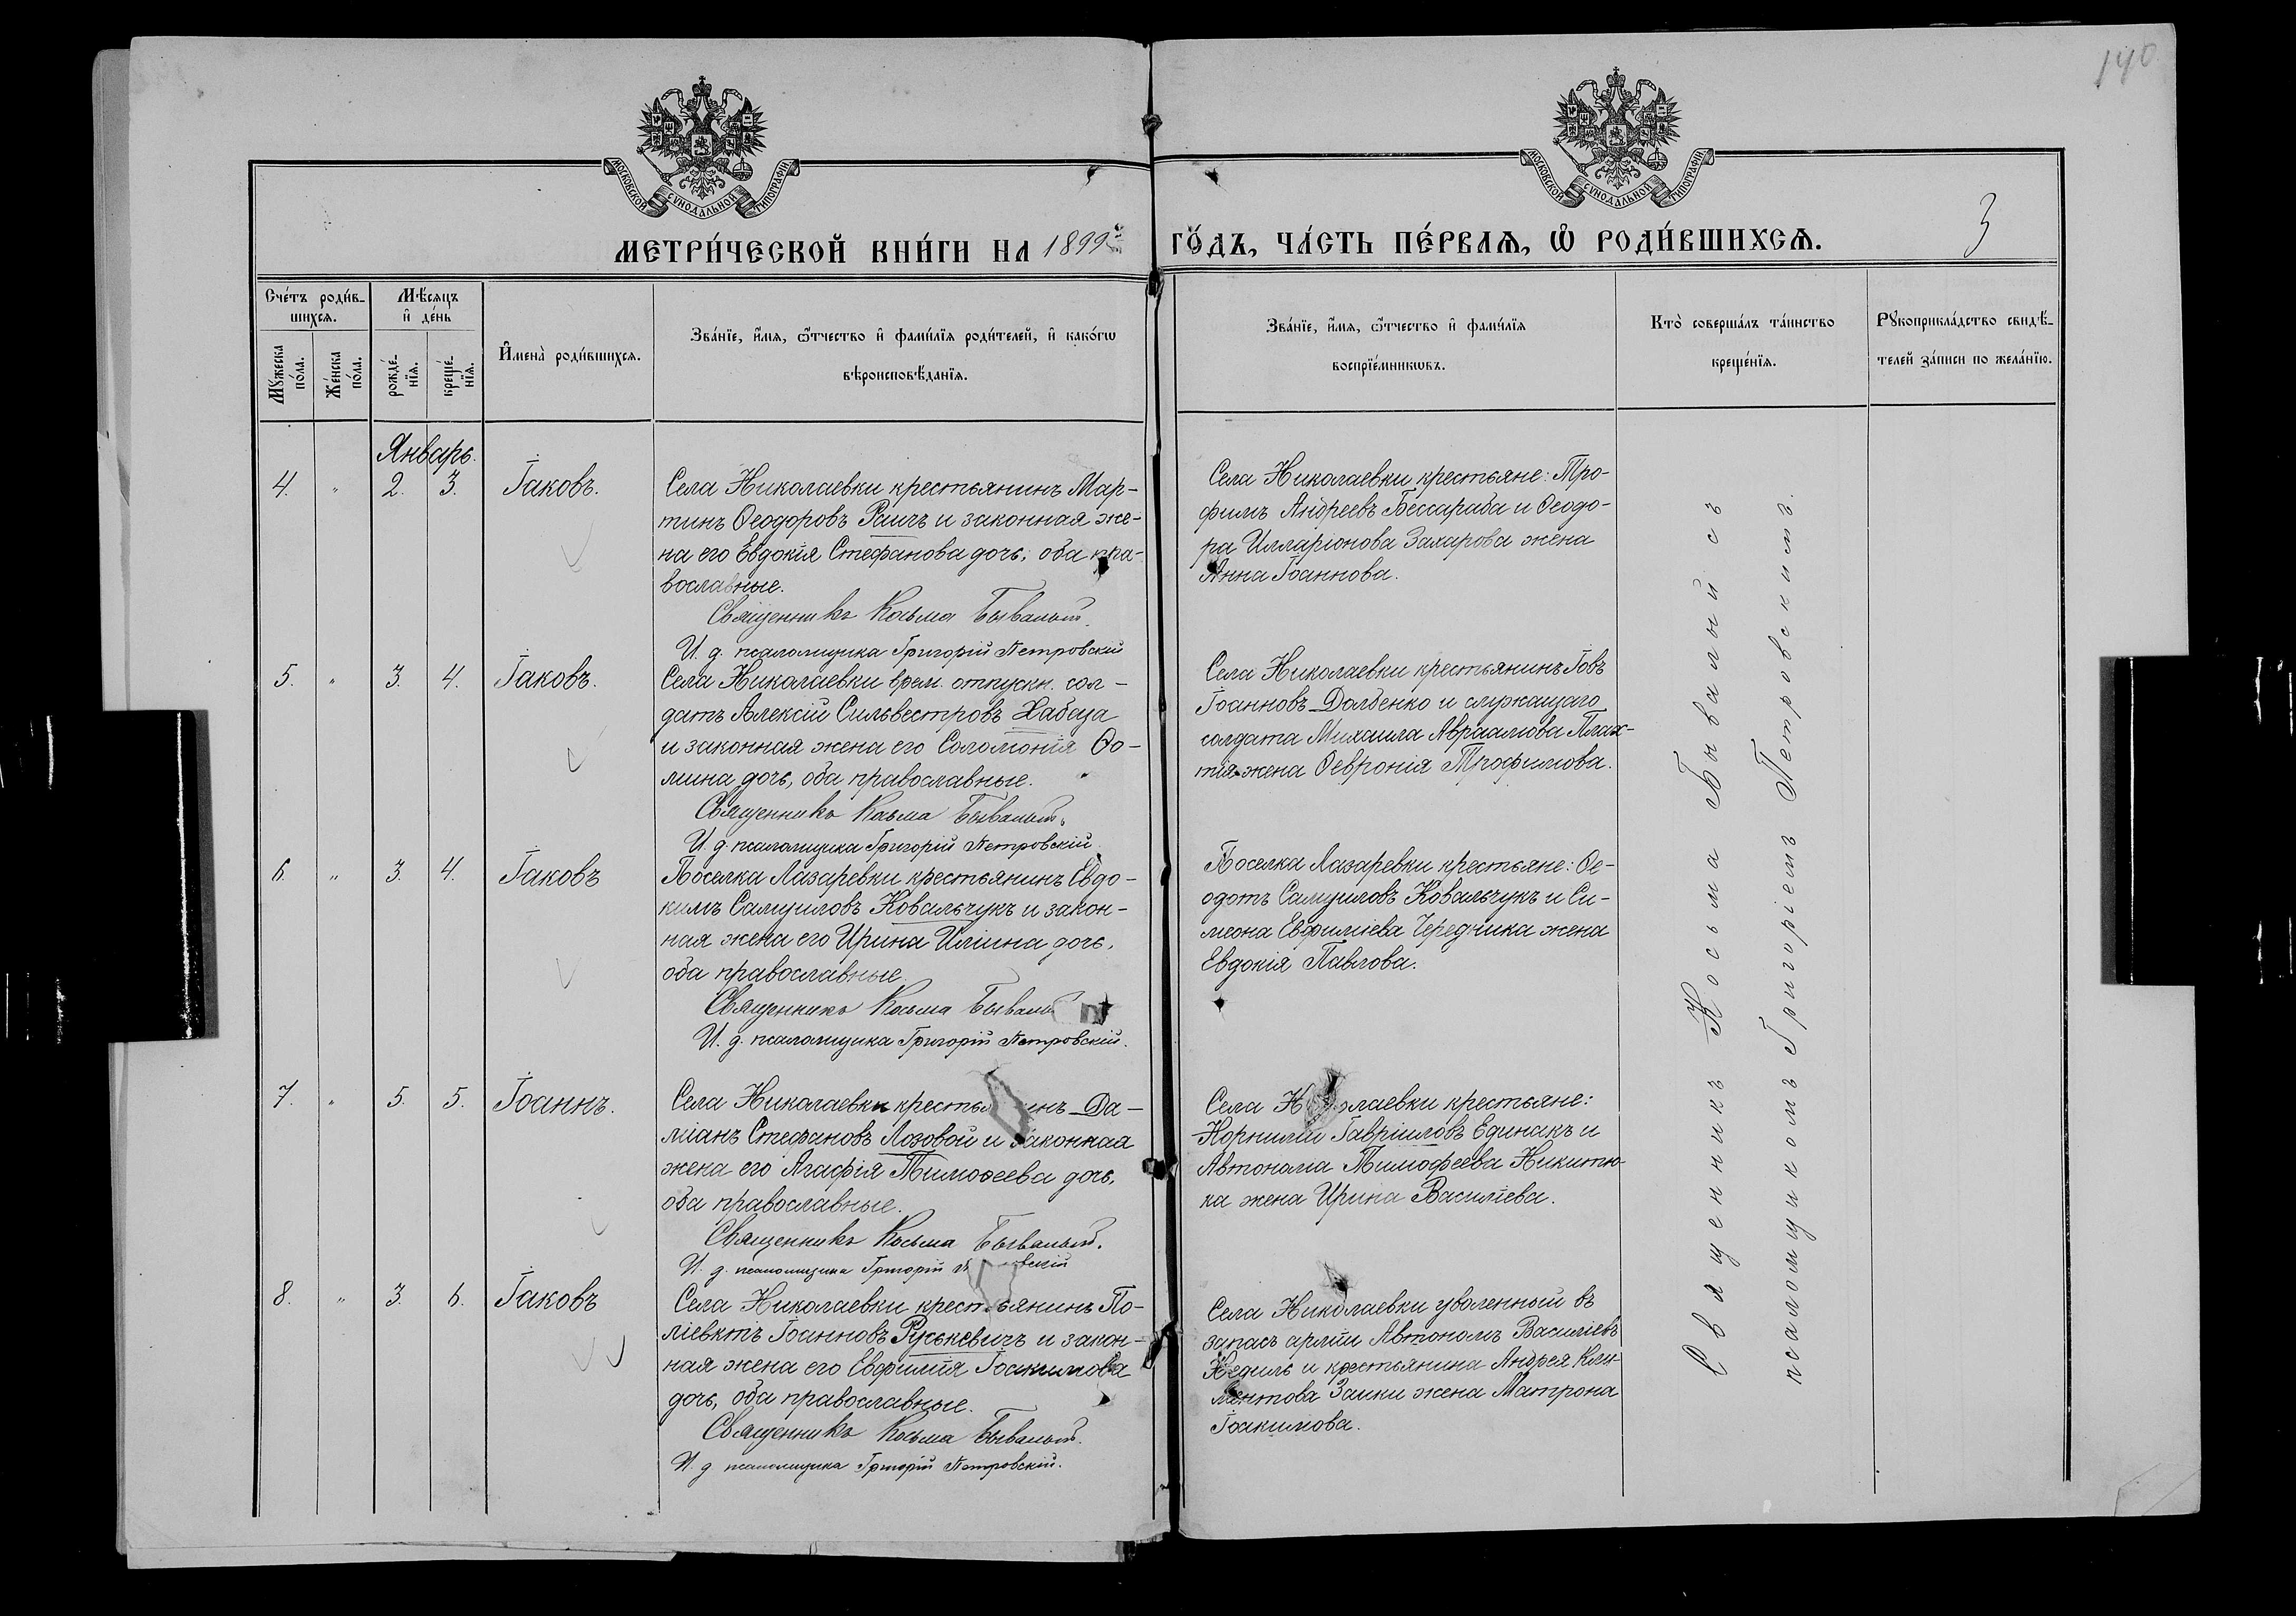 140
МОСКОВСКОЙ СѴНОДАЛЬНОЙ ТИПОГРАФІИ
МОСКОВСКОЙ СѴНОДАЛЬНОЙ ТИПОГРАФІИ
МЕТРИ́ЧЕСКОЙ КНИ́ГИ НА 1899й
ГО́ДЪ, ЧА́СТЬ ПЕ́РВАѦ, Ѡ҆ РОДИ́ВШИХСѦ.
3
Сче́тъ роди́в-
шихсѧ.
Мꙋ́жеска по́ла.
Же́нска по́ла.
Мѣ́сѧцъ
и҆ де́нь
рожде́-нїѧ.
креще́-нїѧ.
И҆мена̀ роди́вшихсѧ.
Зва́нїе, и҆́мѧ, ѻ҆́тчество и҆ фамі́лїѧ роди́телей, и҆ како́гѡ
вѣроисповѣ́данїѧ.
Зва́нїе, и҆́мѧ, ѻ҆́тчество и҆ фамі́лїѧ
воспрїе́мникѡвъ.
Кто̀ соверша́лъ та́инство
креще́нїѧ.
Рꙋкоприкла́дство свидѣ́-
телей за́писи по жела́нїю.
Январь.
4. " 2. 3. Іаковъ.
Села Николаевки крестьянинъ Мар-
тинъ Ѳеодоровъ Раичъ и законная же-
на его Евдокія Стефанова дочь, оба пра-
вославные.
Священникъ Косьма Бывалый.
И. д. псаломщика Григорій Петровскій
Села Николаевки крестьяне: Тро-
фимъ Андреевъ Бессараба и Ѳеодо-
ра Илларіонова Захарова жена
Анна Іоаннова.
5. " 3. 4. Іаковъ.
Села Николаевки врем. отпускн. сол-
датъ Алексій Сильвестровъ Хабаца
и законная жена его Соломонія Ѳо-
мина дочь, оба православные.
Священникъ Косьма Бывалый.
И. д. псаломщика Григорій Петровскій
Села Николаевки крестьянинъ Іовъ
Іоанновъ Долбенко и служащаго
солдата Михаила Авраамова Плах-
тія жена Ѳевронія Трофимова.
6 " 3. 4. Іаковъ
Поселка Лазаревки крестьянинъ Евдо-
кимъ Самуиловъ Ковальчукъ и закон-
ная жена его Ирина Иліина дочь,
оба православные.
Священникъ Косьма
И. д. псаломщика Григорій Петровскій.
Поселка Лазаревки крестьяне: Ѳе-
одотъ Самуиловъ Ковальчукъ и Си-
меона Евфиміева Чередника жена
Евдокія Павлова.
7. " 5. 5. Іоаннъ.
Села Николаевки Да-
міанъ Стефановъ Лозовой и законная
жена его Агафія Тимоѳеева дочь,
оба православные.
Священникъ Косьма Бывалый.
И. д. псаломщика Григорій
Села крестьяне:
Корнилій Гавріиловъ Единакъ и
Автонома Тимофеева Никитю-
ка жена Ирина Василіева.
8. " 3. 6. Іаковъ
Села Николаевки крестьянинъ По-
ліевктъ Іоанновъ Руськевичъ и закон-
ная жена его Евфимія Іоакимова
дочь, оба православные.
Священникъ Косьма Бывалый.
И. д псаломщика Григорій Петровскій.
Села Николаевки уволенный въ
запасъ арміи Автономъ Василіевъ
Кедиль и крестьянина Андрея Кли-
ментова Заики жена Матрона
Іоакимова.
Священникъ Косьма Бывалый съ
псаломщикомъ Григоріемъ Петровскимъ.